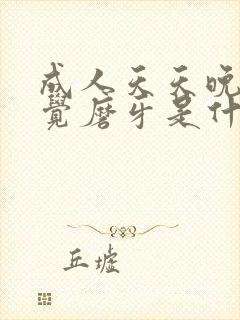 成人天天晚
覺磨牙是什
丘墟